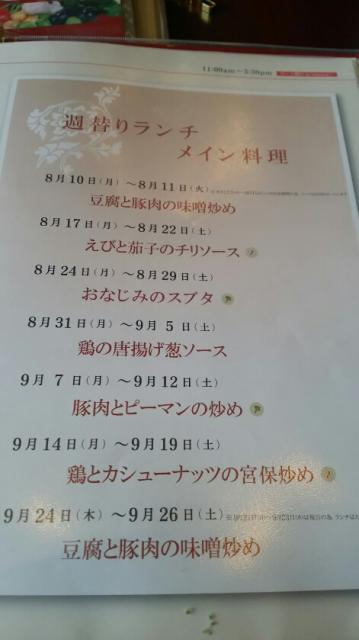 11:00am～5:30pm
週替りランチ
メイン料理
8月10日(月)～8月11日(火)
豆腐と豚肉の味噌炒め
8月17日(月)～8月22日(土)
えびと茄子のチリソース
8月24日(月)～8月29日(土)
おなじみのスブタ
8月31日(月)～9月 5日(土)
鶏の唐揚げ葱ソース
9月 7日(月)～9月12日(土)
豚肉とピーマンの炒め
9月14日(月)～9月19日(土)
鶏とカシューナッツの宮保炒め
9月24日(木)～9月26日(土)
豆腐と豚肉の味噌炒め